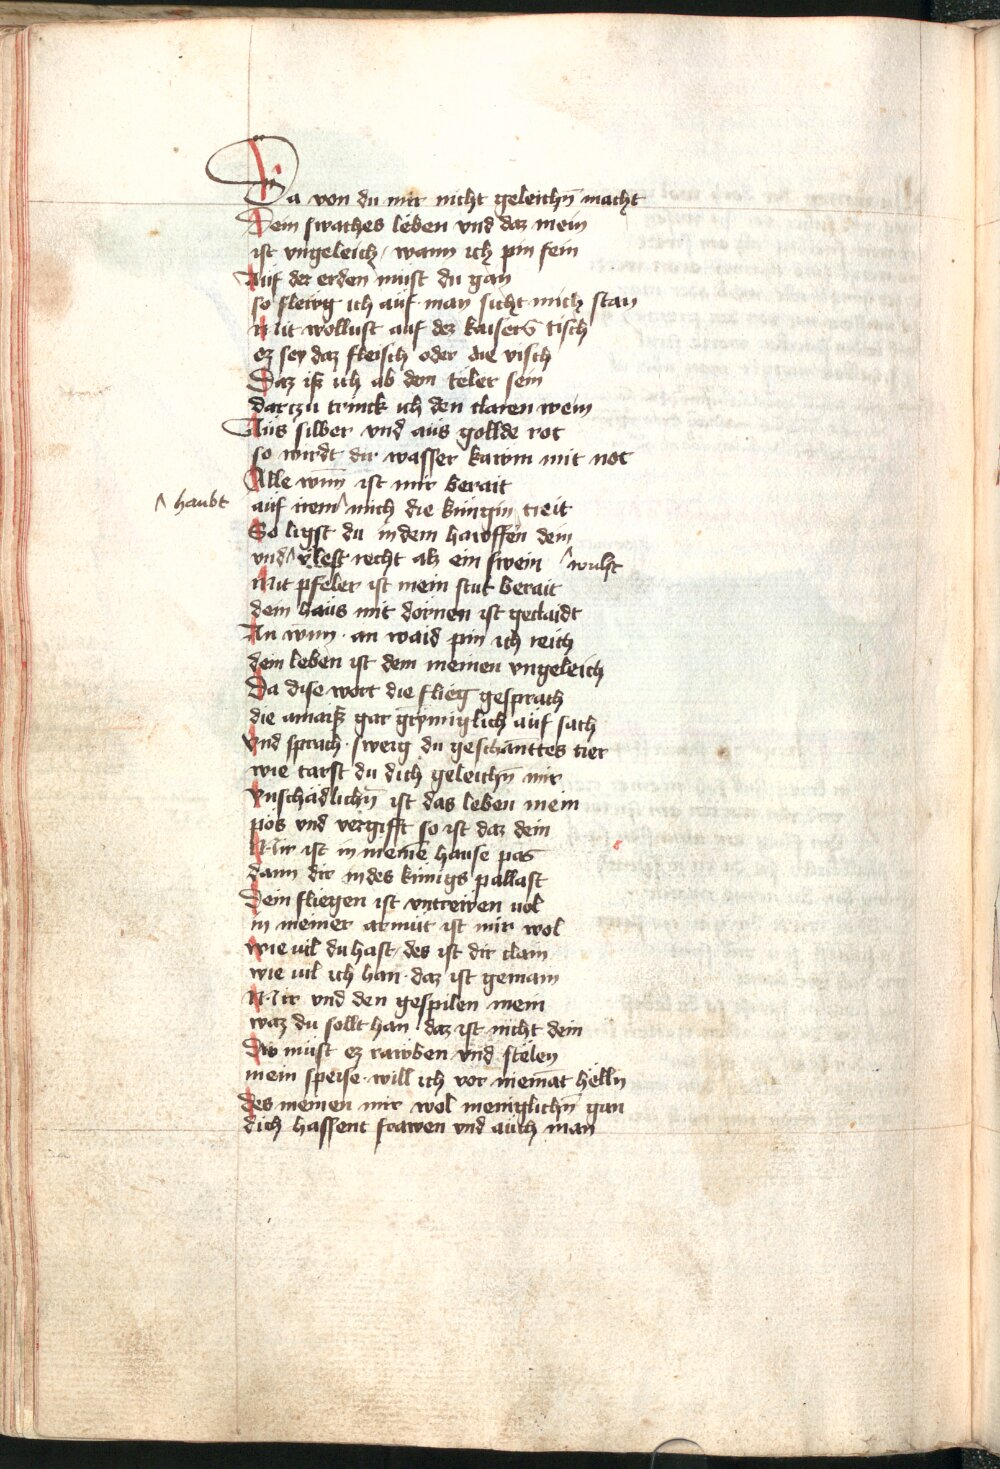 Da von du mir nicht geleichn̄ macht
Dein swaches leben vnd daz mein
ist vngeleich / wann ich pin fein
Auf der erden must du gan
so flewg ich auf man sicht mich stan
Mit wollust auf dez kaisers tisch
ez sey daz fleisch oder die visch
Daz iſz ich ab dem teler sein
darczu trinck ich den claren wein
Aus silber vnd aus gollde rot
so wirdt dir wasser kawm mit not
Alle wun̄ ist mir berait
^ haubt auf irem ^ mich die kungin treit
So ligst du in dem hawffen dein
vnd ^ v̈lest recht alz ein swein ^ wulst
Mit pfeler ist mein stat berait
dein haus mit dornen ist geclaidt
An wun̄ · an waid pin ich reich
dein leben ist dem meinen vngeleich
Da dise wort die flieg gesprach
die amaiſz gar grymiglich auf sach
Vnd sprach · sweig du geschanttes tier
wie tarst du dich geleichn̄ mir
Vnschadlichn̄ ist das leben mein
pös vnd vergifft so ist daz dein
Mir ist in meinē hause pas
dann dir in des kunigs pallast
Dein fliegen ist vntrewen uol
in meiner armut ist mir wol
wie uil du hast / des ist dir clain
wie uil ich han · daz ist gemain
Mir vnd den gespilen mein
waz du sollt han daz ist nicht dein
Dw must ez rawben vnd stelen
mein speise · will ich vor niemāt helln
des meinen mir wol meniglichn̄ gan
dich hassent frawen vnd auch man